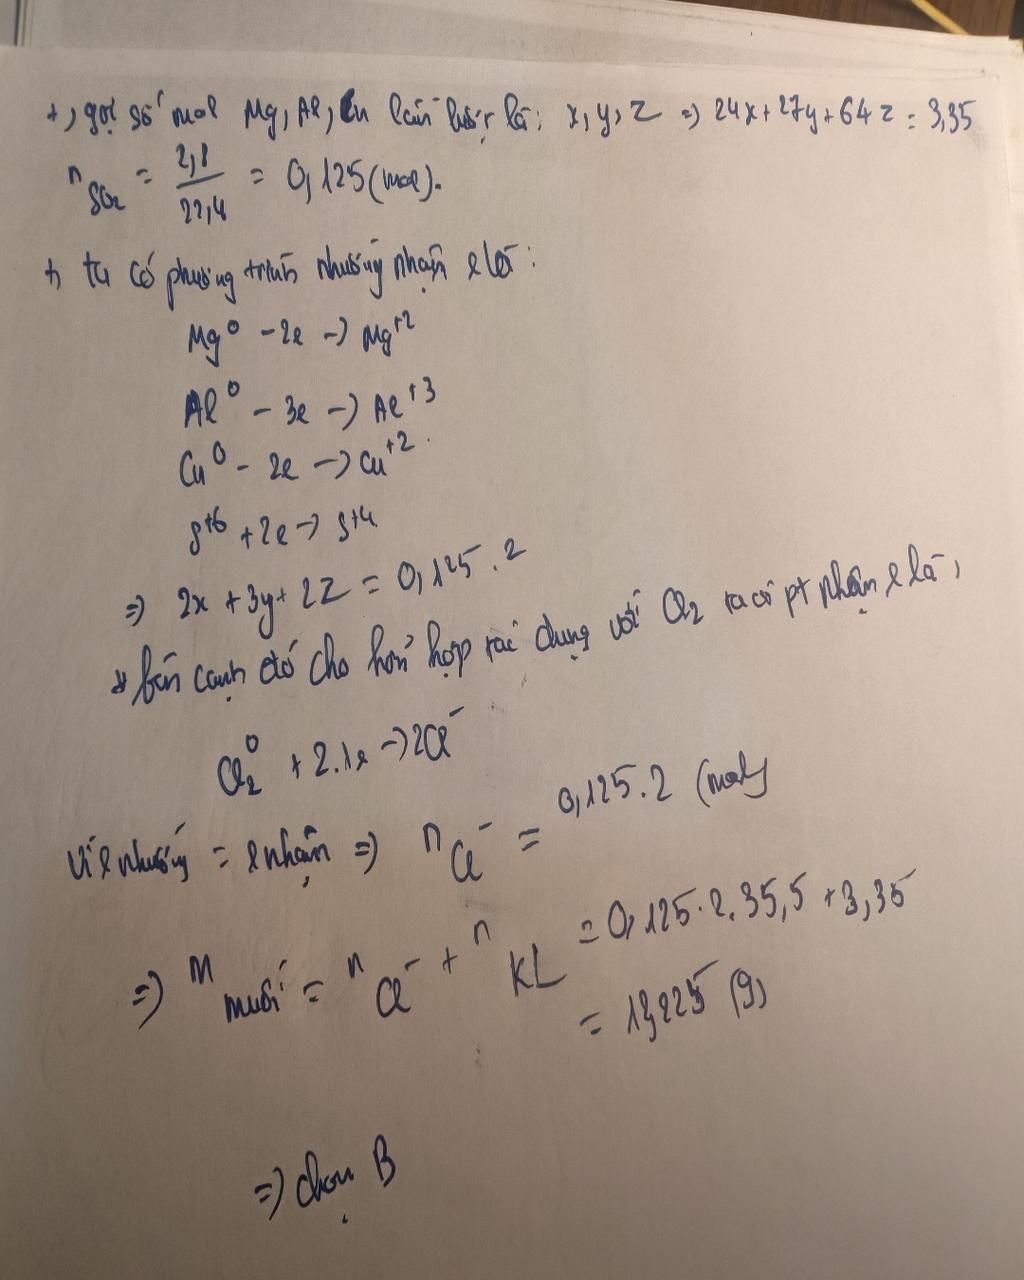 +, gọi số mol Mg, Al, Cu lần lượt là: x, y, z => 24x + 27y + 64z = 3,35
nSO2 = 2,8/22,4 = 0,125 (mol).
+, ta có phương trình nhường nhận e là:
Mg⁰ - 2e -> Mg⁺²
Al⁰ - 3e -> Al⁺³
Cu⁰ - 2e -> Cu⁺².
S⁺⁶ + 2e -> S⁺⁴
=> 2x + 3y + 2z = 0,125 . 2
* bên cạnh đó cho hỗn hợp tác dụng với Cl2 ta có pt nhận e là,
Cl₂⁰ + 2.1e -> 2Cl⁻
vì e nhường = e nhận => nCl⁻ = 0,125.2 (mol)
=> m muối = nCl⁻ + nKL = 0,125.2.35,5 + 3,35
= 12,225 (g)
=> chọn B